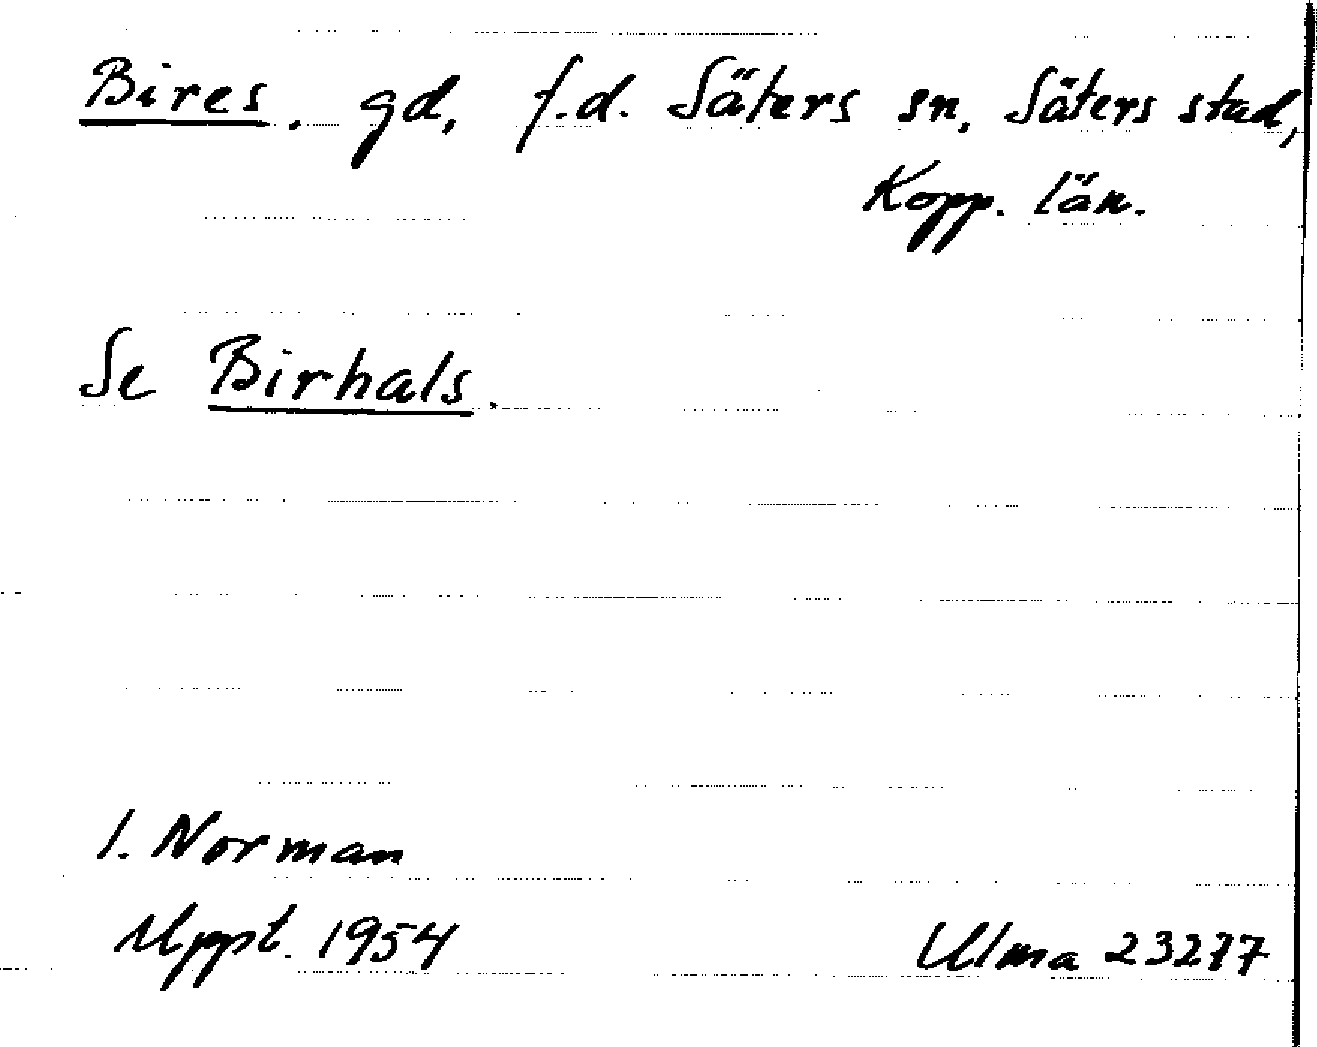 Bires, gd, f.d. Säters sn, Säters stad,
Kopp. län.
Se Birhals.
I. Norman
Uppt. 1954
Ulma 23277